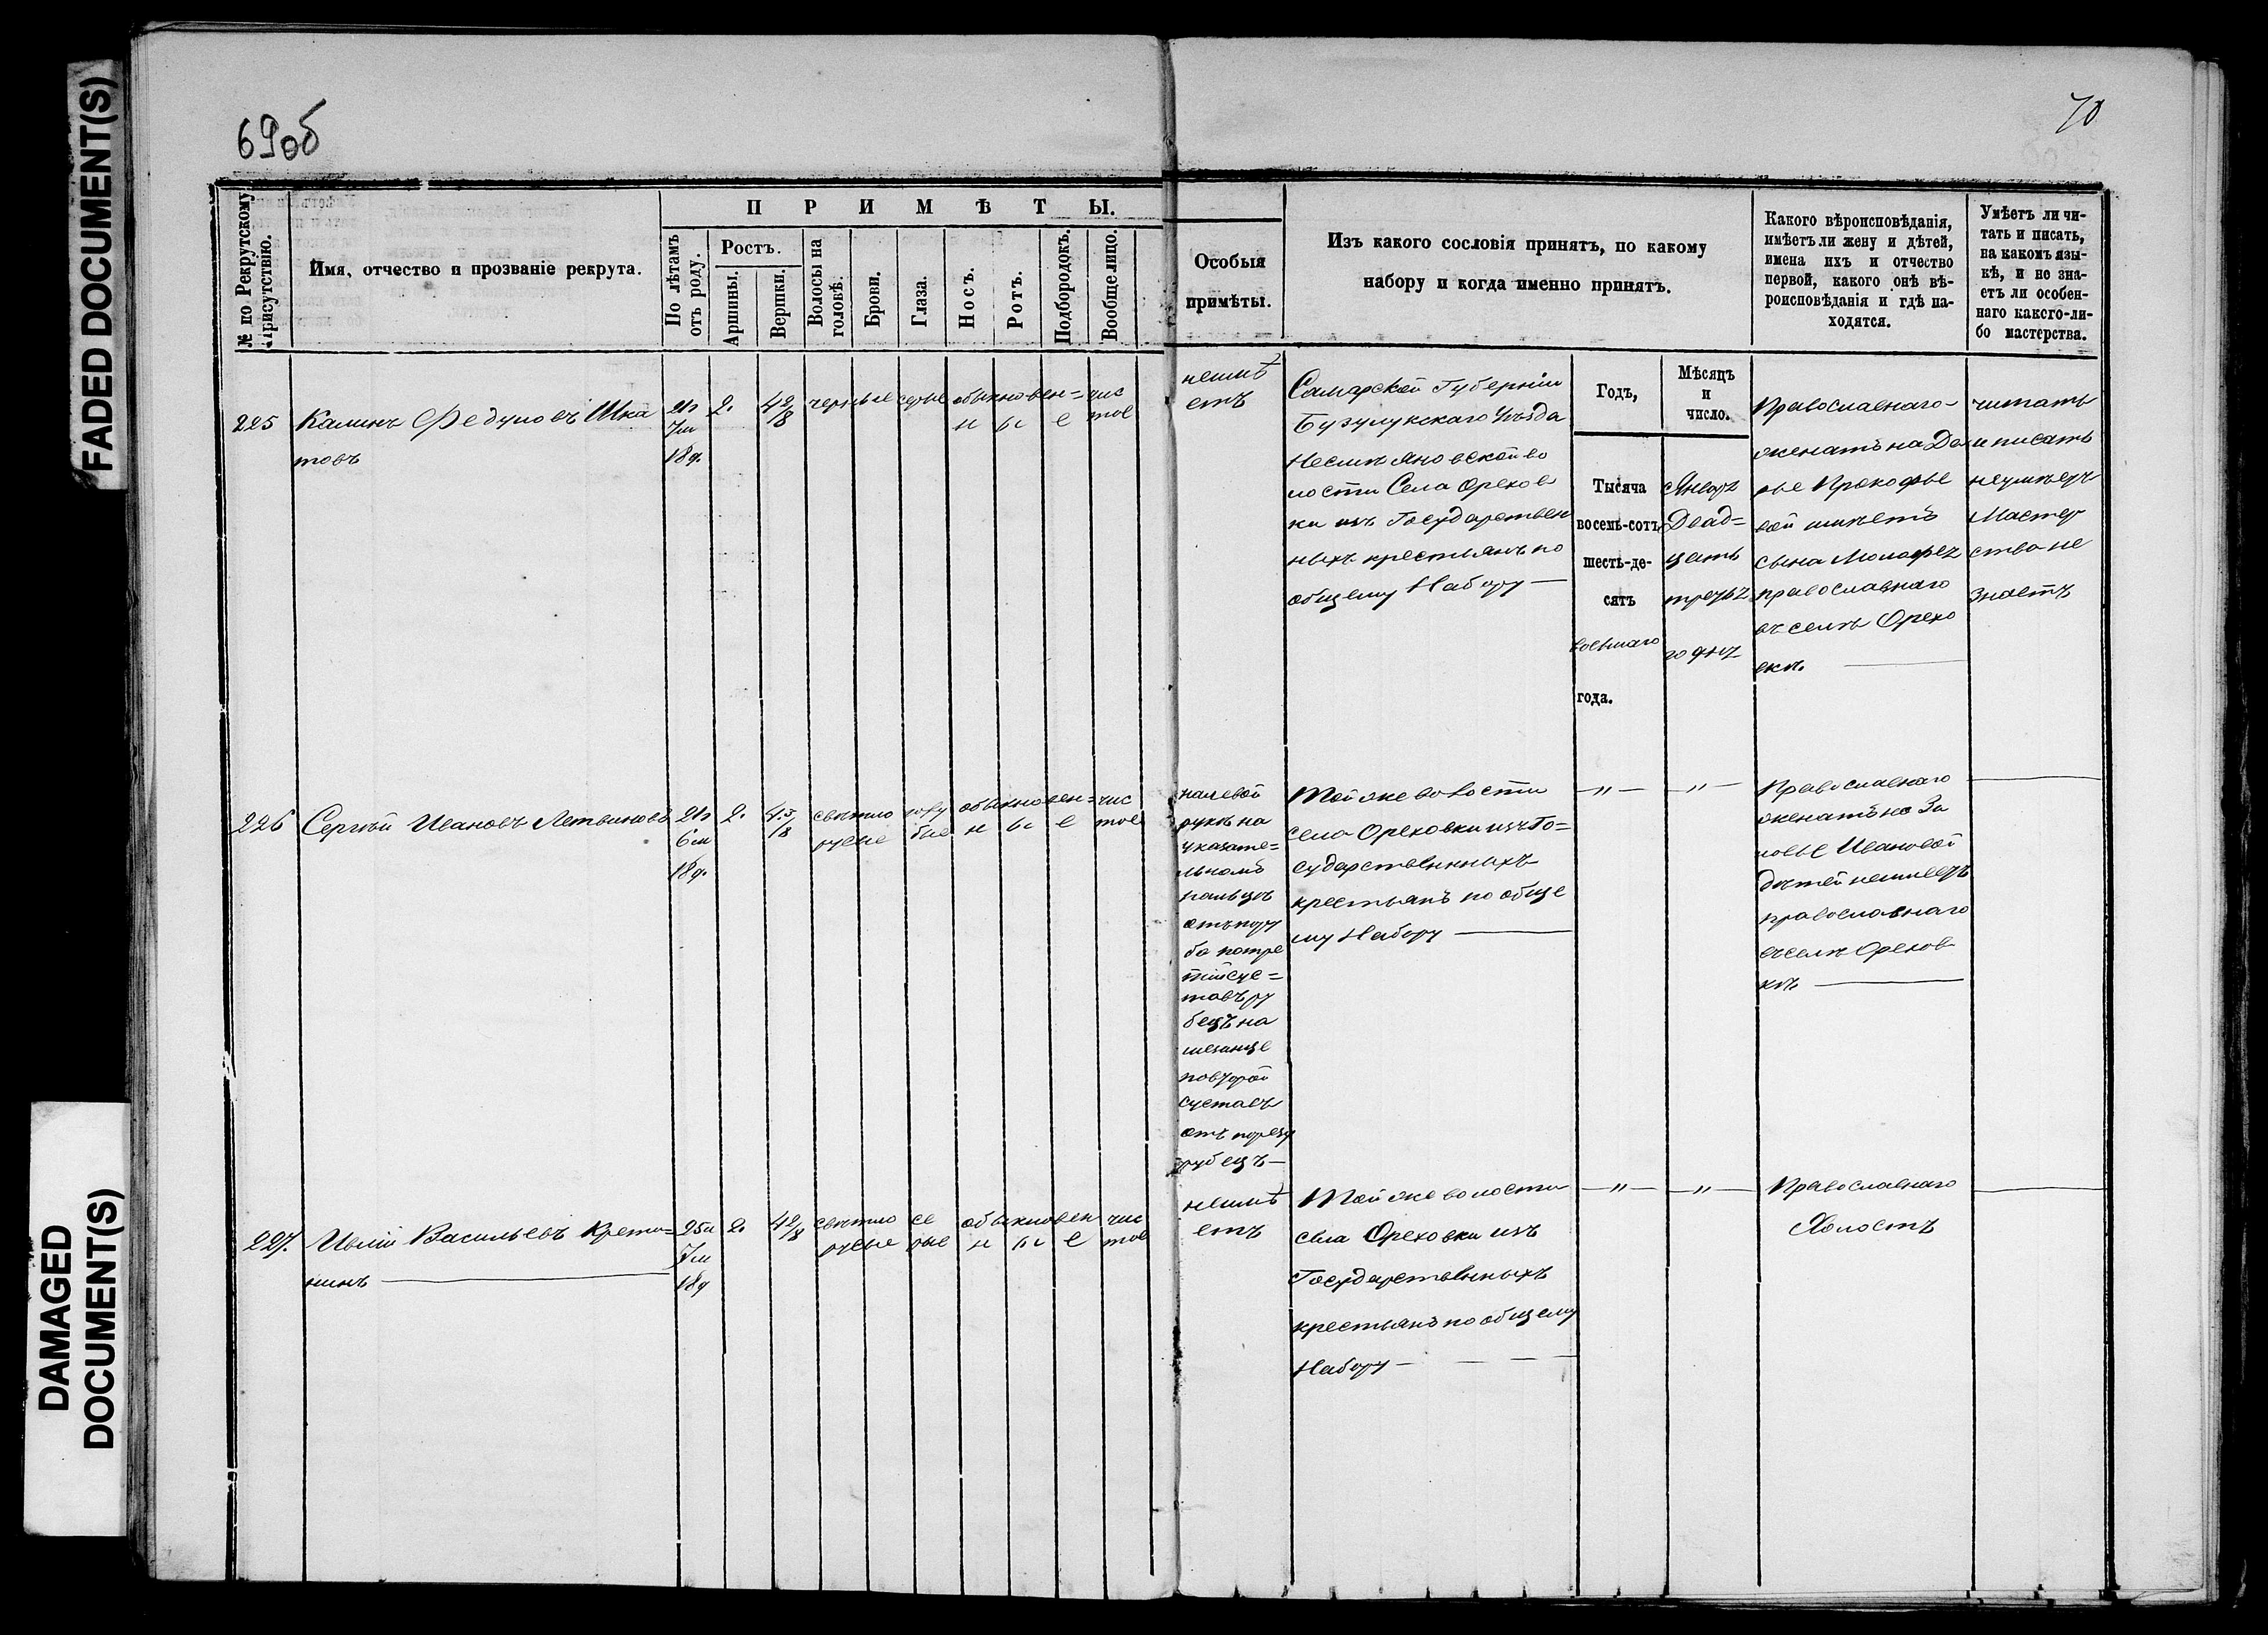 69об
70
FADED DOCUMENT(S)
DAMAGED
DOCUMENT(S)
№ по Рекрутскому
присутствію.
Имя, отчество и прозваніе рекрута.
ПРИМѢТЫ.
По лѣтамъ
отъ роду.
Ростъ.
Аршины.
Вершки.
Волосы на
головѣ.
Брови.
Глаза.
Носъ.
Ротъ.
Подбородокъ.
Вообще лицо.
Особыя
примѣты.
Изъ какого сословія принятъ, по какому
набору и когда именно принятъ.
Какого вѣроисповѣданія,
имѣетъ ли жену и дѣтей,
имена ихъ и отчество
первой, какого онѣ вѣ-
роисповѣданія и гдѣ на-
ходятся.
Умѣетъ ли чи-
тать и писать,
на какомъ язы-
кѣ, и не зна-
етъ ли особен-
наго какого-ли-
бо мастерства.
225
Калинъ Федуловъ Шка
товъ
21г
7м
18д.
2.
4 2/8
черные
серые
обыкновен=
ные
чис
тое
неимѣ
етъ
Самарской Губерніи
Бузулукскаго Уѣзда
волости Села Орехов
ки изъ Государствен
ныхъ крестьянъ по
общему Набору —
Годъ,
Мѣсяцъ
и
число.
Тысяча
восемь-сотъ
шесть-де-
сятъ
восьмаго
года.
Январ
Двад=
цать
третья
го дня
Православнаго
женатъ на Да
рье Прокофье
вой имѣетъ
сына
православнаго
въ селѣ Орехо
вкѣ —
читать
и писать
неумѣетъ
Мастер
ство не
знаетъ
226
Сергѣй Ивановъ Летвиновъ
21г
6м
18д.
2.
4 3/8
светло
русые
голу
бые
обыкновен=
ные
чис
тое
налевой
рукѣ на
указате=
льномъ
пальцѣ
отъ пору
ба
тій сус=
тавъ ру
бецъ на
мезинце
сустав
отъ порезу
рубецъ —
Той же волости
села Ореховки изъ Го=
сударственныхъ
крестьянъ по обще
му Набору —
— " —
— " —
Православнаго
женатъ на
Ивановой
дѣтей неимеетъ
православнаго
въ селѣ Орехов
кѣ —
227.
Василь евъ Крети=
нинъ —
25л
7м
18д
2.
4 2/8
светло
русые
се
рые
обыкновен
ные
чис
тое
неимѣ
етъ
Той же волости
села Ореховки изъ
Государственныхъ
крестьянъ по общему
Набору —
— " —
— " —
Православнаго
Холостъ